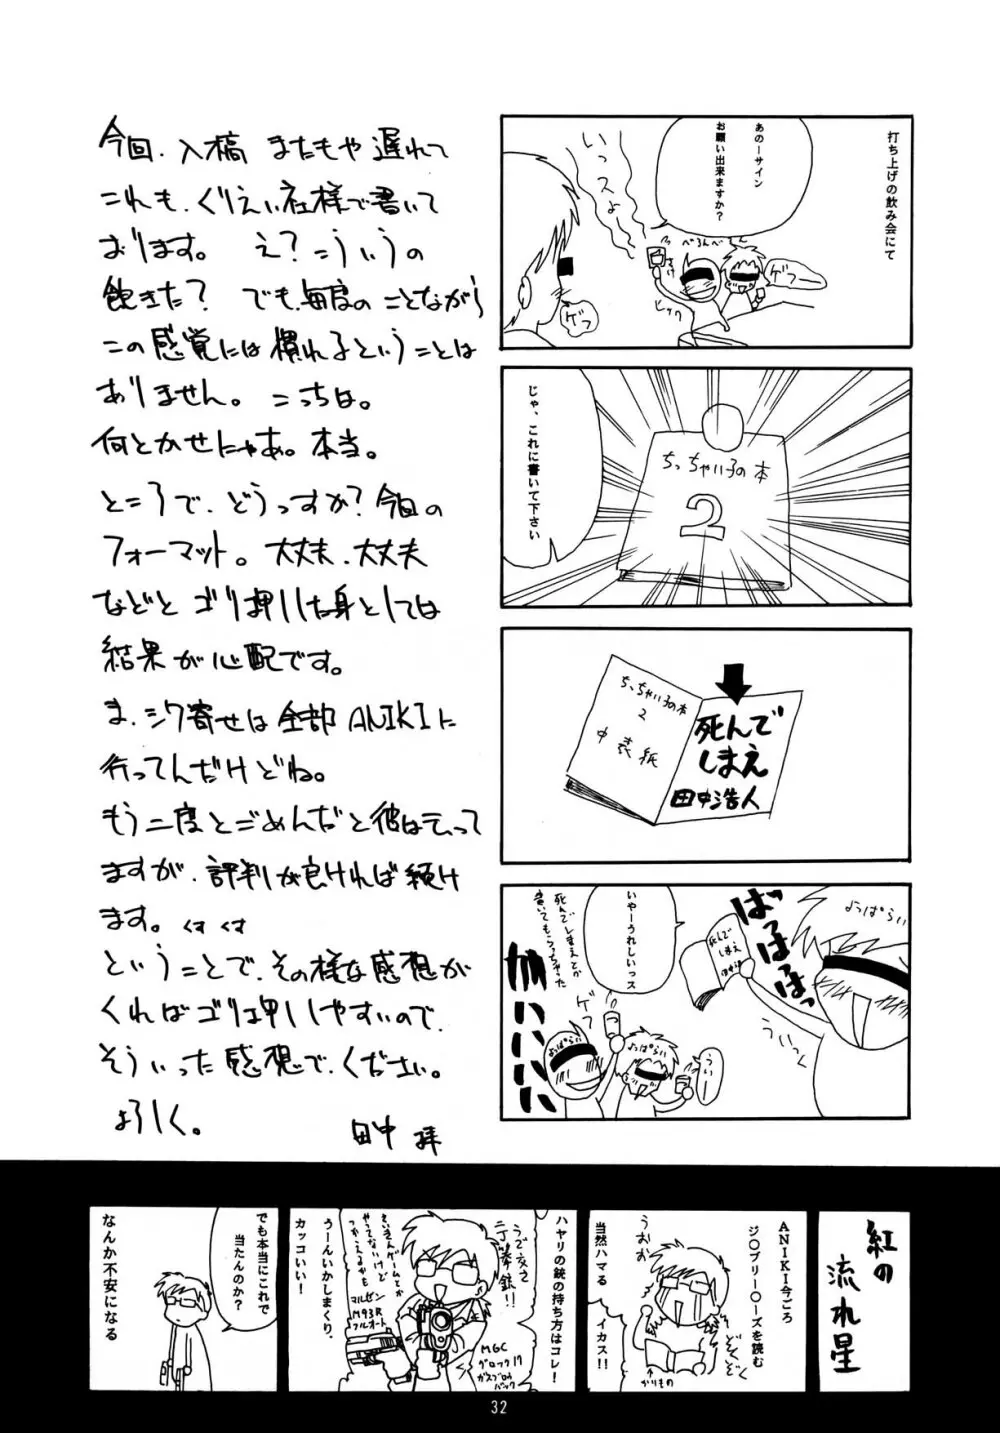 今回、入稿 またもや遅れて
これも、くりえい社様で書いて
おります。 え？こういうの
飽きた？ でも、毎度のことながら
この感覚には慣れるということは
ありません。こっちは。
何とかせにゃあ。本当。
ところで、どうっすか？今回の
フォーマット。大丈夫、大丈夫
などと ゴリ押しした身としては
結果が心配です。
ま、シワ寄せは全部ANIKIに
行ってんだけどね。
もう二度とごめんだと彼は云って
ますが、評判が良ければ続け
ます。くす くす
ということで、その様な感想が
くればゴリ押ししやすいので、
そういった感想で、ください。
よろしく。
田中 拝
打ち上げの飲み会にて
あのーサイン
お願い出来ますか？
いっスよ
べろんべ
ゲフー
さけ
ヒック
ゲフ
じゃ、これに書いて下さい
ちっちゃい子の本
2
ちっちゃい子の本
2
中表紙
死んで
しまえ
田中浩人
よっぱらい
ばっはっはっはっ
死んで
しまえ
ういっく
いやーうれしいっス
死んでしまえとか
書いてもらっちゃった
ゲフ
よっぱらい
よっぱらい
ういー
紅の
流れ星
ANIKI今ごろ
ジ○ブリー○ーズを読む
うおお
ぞくぞく
↑かりもの
当然ハマる イカス!!
ハヤリの銃の持ち方はコレ！
うで交さ
二丁拳銃!!
MGC
グロック17
ガスブローバック
さいきんゲームとか
やってないけど
つかってるえもの
マルゼン
M93R
フルオート
うーんいかしまくり、
カッコいい！
でも本当にこれで
当たんのか？
なんか不安になる
32